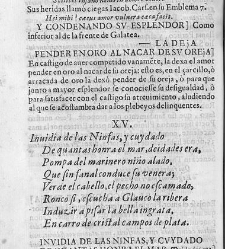 Sus heridas llamò ciegas Jacob. Garsen su Emblema 7.
Hei mihi! caecus amor vulnere caeca facit.
Y CONDENANDO SV ESPLENDOR] Como
inferior al de la frente de Galatea.
— LA DEXA
PENDER EN ORO AL NACAR DE SV OREJA]
En castigo de auer competido vanamẽte, la dexa el amor
pender en oro al nacar de su oreja: esto es, en el çarcillo, ò
arracada de oro la dexò pender de su oreja, ò para que
junto a mayor esplendor se conociesse su desigualdad, ò
para satisfacer con el castigo su atreuimiento, aludiendo
al que se acostumbra dar a los plebeyos delinquentes.
XV.
Inuidia de las Ninfas, y cuydado
De quantas honra el mar, deidades era,
Pompa del marinero niño alado,
Que sin fanal conduce su venera;
Verde el cabello, el pecho no escamado,
Ronco si, escucha a Glauco la ribera
Induzir a pisar la bella ingrata,
En carro de cristal campos de plata.
INVIDIA DE LAS NINFAS, Y CVYDADO